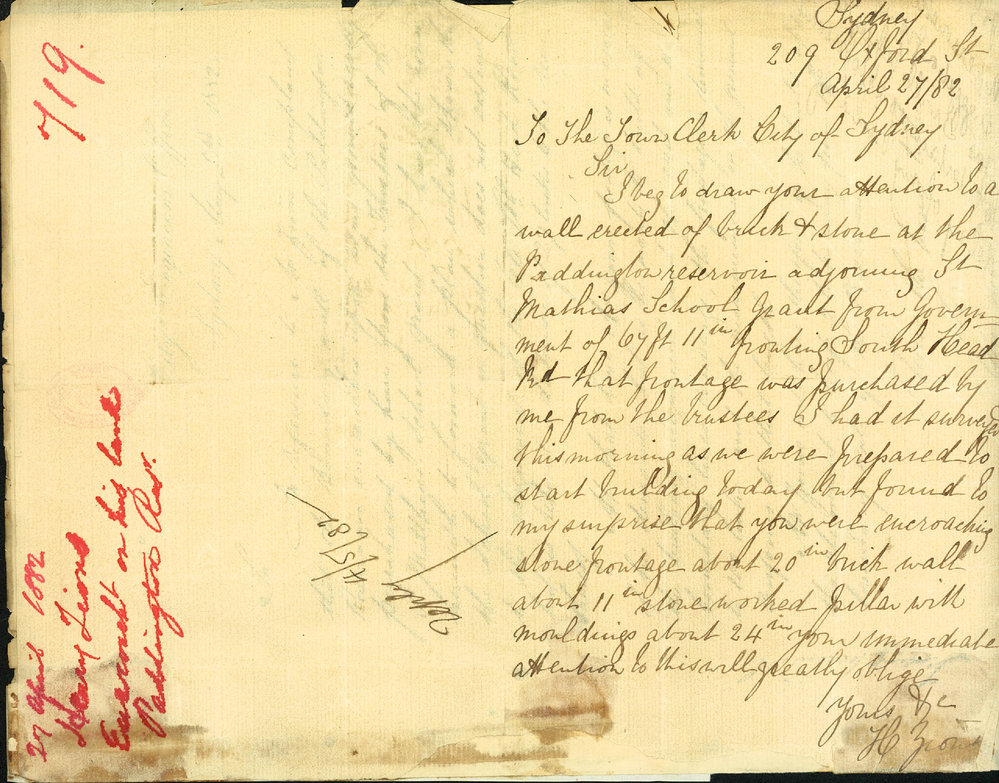 719.
27 April 1882
Henry
Encroacht on his land
Paddington Resr.
Reply
4/5/82
Sydney
209 Oxford St
April 27/82
To The Town Clerk City of Sydney
Sir
I beg to draw your attention to a
wall erected of brick & stone at the
Paddington reservoir adjoining St
Mathias School grant from Govern-
ment of 67 ft 11 in fronting South Head
Rd that frontage was purchased by
me from the trustees I had it surveyed
this morning as we were prepared to
start building today but found to
my surprise that you were encroaching
stone frontage about 20 in brick wall
about 11 in stone worked pillar with
mouldings about 24 in your immediate
attention to this will greatly oblige
Yours &c
H